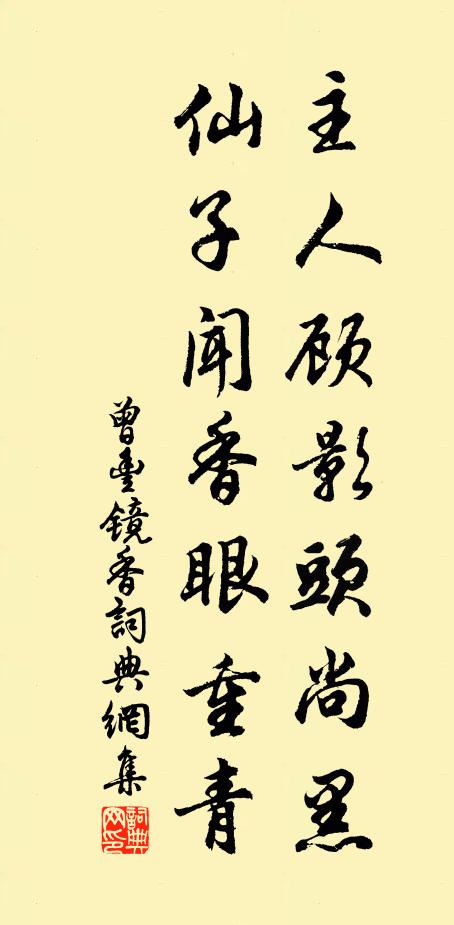 主人顾影頭尚黑
仙子闻香眼重青
曾豐鏡香詞典網集
詞典网印